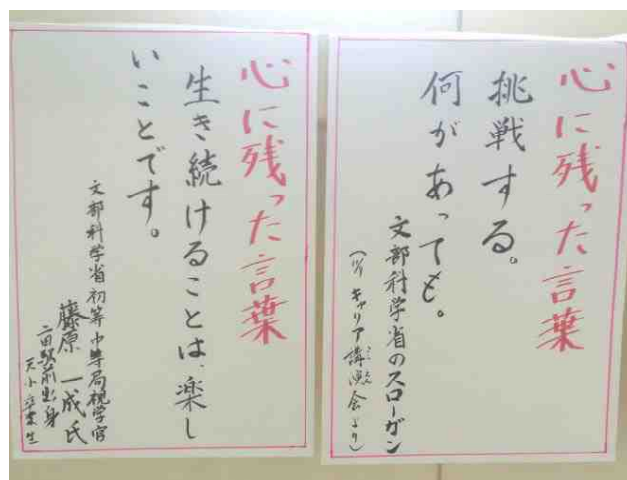 心に残った言葉
挑戦する。
何があっても。
文部科学省のスローガン
キャリア講演会より)
心に残った言葉
生き続けることは、楽し
いことです。
文部科学省初等中等局視学官
藤原 一成氏
二田駅前出身
天小卒業生